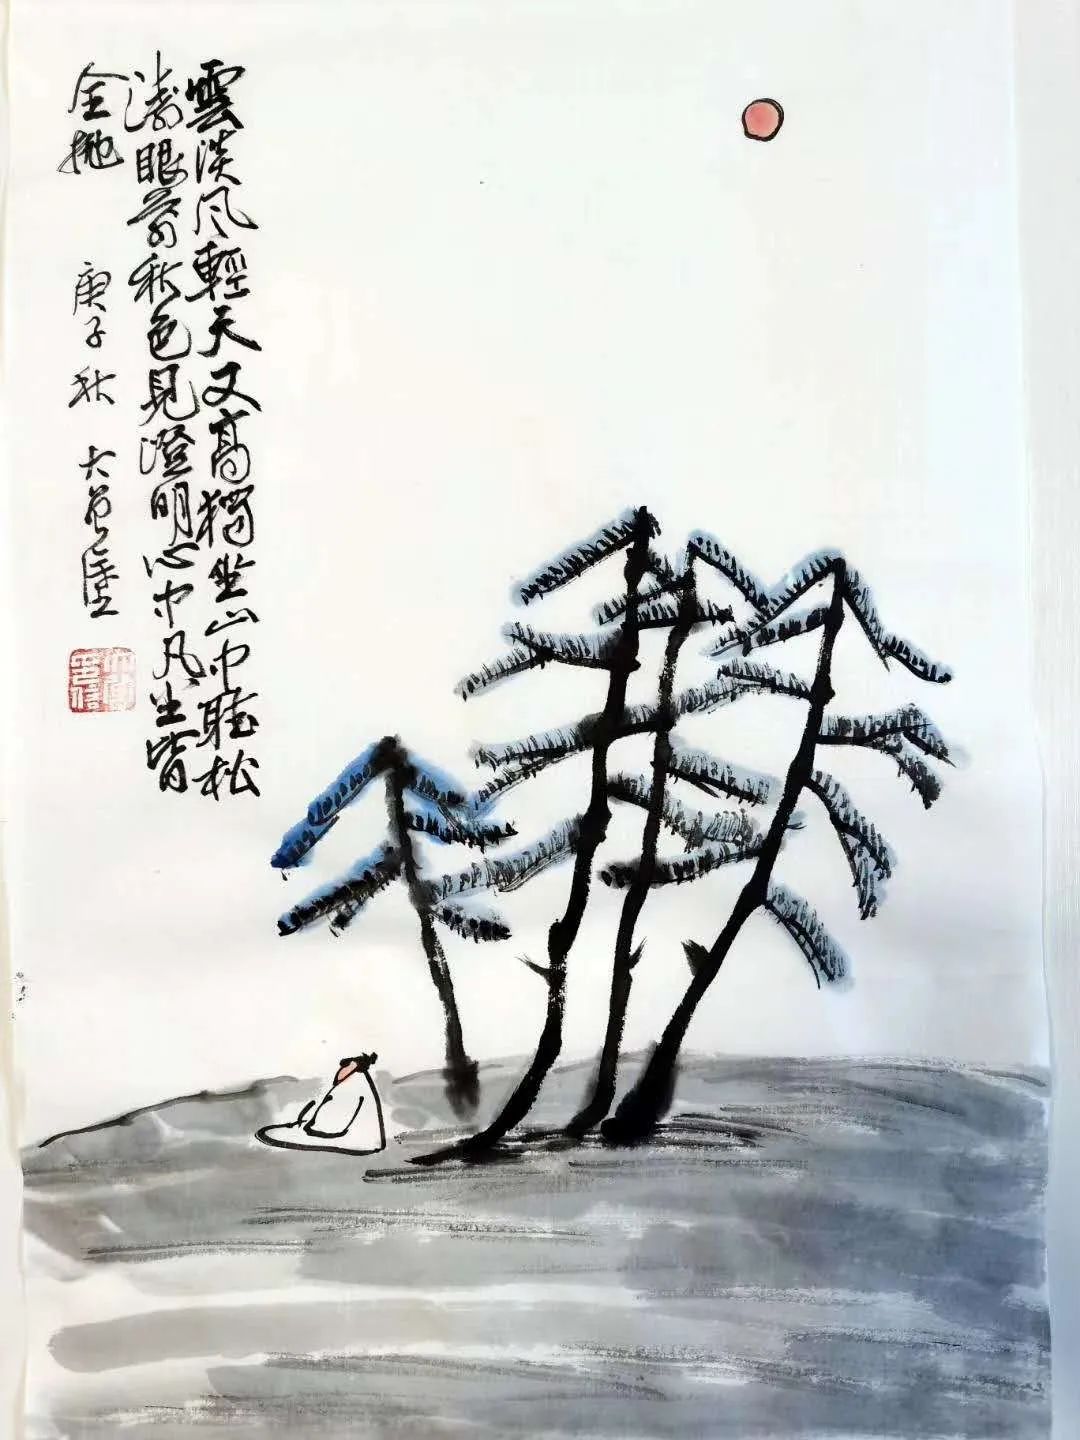 雲淡风輕天又高獨坐山中聽松
濤眼前秋色見澄明心中凡尘皆
全抛 庚子秋 大